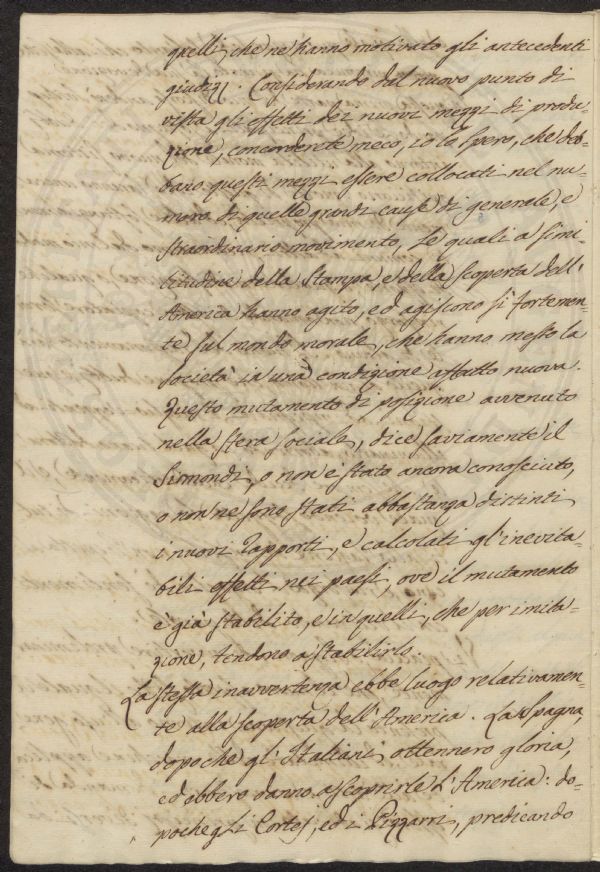 quelli, che ne hanno motivato gli antecedenti
giudizj. Considerando dal nuovo punto di
vista gli effetti dei nuovi mezzi di produ-
zione, concorderete meco, io lo spero, che deb-
bano questi mezzi essere collocati nel nu-
mero di quelle grandi cause di generale, e
straordinario movimento, le quali a simi-
litudine della Stampa, e della scoperta dell'
America hanno agito, ed agiscono sì fortemen-
te sul mondo morale, che hanno messo la
società in una condizione affatto nuova.
Questo mutamento di posizione avvenuto
nella sfera sociale, dice saviamente il
Sismondi, o non è stato ancora conosciuto,
o non ne sono stati abbastanza distinti
i nuovi rapporti, e calcolati gl'inevita-
bili effetti nei paesi, ove il mutamento
è già stabilito, e in quelli, che per imita-
zione, tendono a stabilirlo.
La stessa inavvertenza ebbe luogo relativamen-
te alla scoperta dell'America. La Spagna,
dopochè gl'Italiani ottennero gloria,
ed ebbero danno a scoprirle l'America: do-
pochè gli Cortes, ed i Pizzarri, predicando